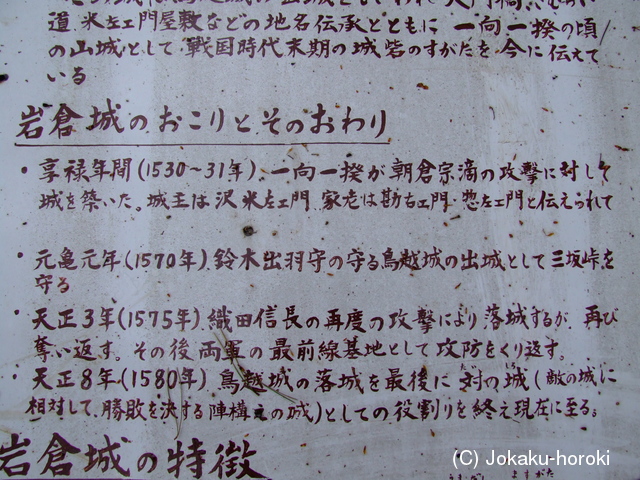 道 氷左ェ門屋敷などの地名伝承とともに 一向一揆の頃
の山城として 戦国時代末期の城砦のすがたを 今に伝えて
いる
岩倉城のおこりとそのおわり
・享禄年間(1530〜31年) 一向一揆が 朝倉宗滴の攻撃に対して
城を築いた。城主は 沢 米左ェ門 家老は 勘右ェ門・惣左ェ門と伝えられて
・元亀元年(1570年) 鈴木出羽守の守る鳥越城の出城として 三坂峠を
守る
・天正3年(1575年) 織田信長の再度の攻撃により 落城するが 再び
奪い返す。その後 両軍の最前線基地として 攻防をくり返す。
・天正8年(1580年) 鳥越城の落城を最後に 対の城(敵の城に
相対して 勝敗を決する陣構えの城)としての役割りを終え現在に至る。
岩倉城の特徴
(C) Jokaku-horoki